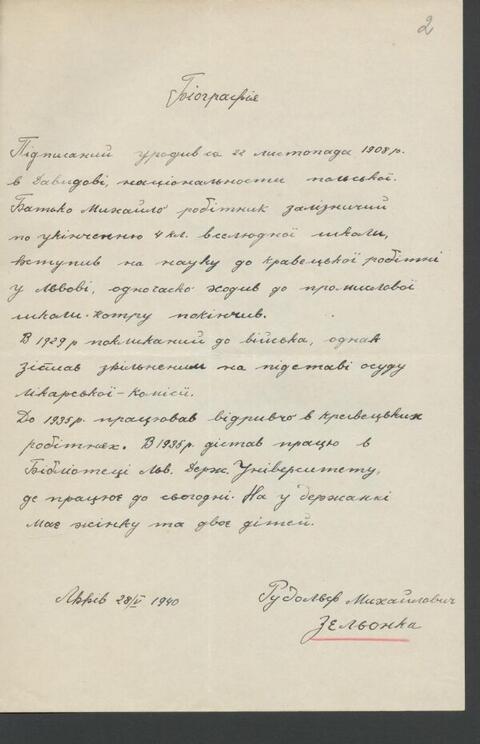 2
Біографія
Підписаний уродився 22 листопада 1908 р.
в Давидові, національности польської.
Батько Михайло робітник залізничий
по укінченню 4 кл. вселюдної школи,
вступив на науку до кравецької робітні
у Львові, одночасно ходив до промислової
школи котру покінчив.
В 1929 р покликаний до війська, однак
зістав звільненим на підставі осуду
лікарської-комісії.
До 1935 р. працював відривчо в кравецьких
робітнях. В 1935 р. дістав працю в
Бібліотеці Льв. Держ. Університету,
де працює до сьогодні. На удержанні
має жінку та двоє дітей.
Львів 28/V 1940
Рудольф Михайлович
Зельонка